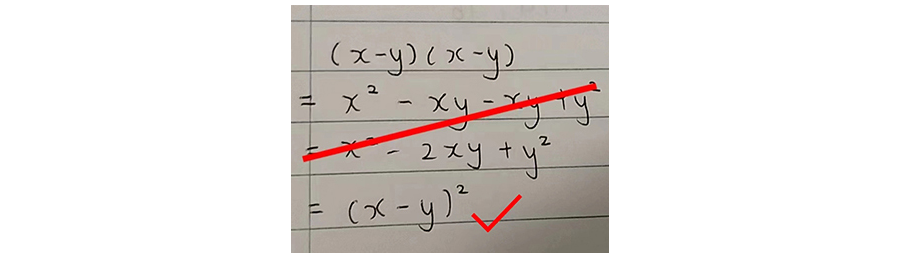 (x-y)(x-y)
= x² - xy - xy + y²
= x² - 2xy + y²
= (x-y)²